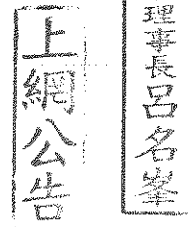 理事長呂名峯
上網公告